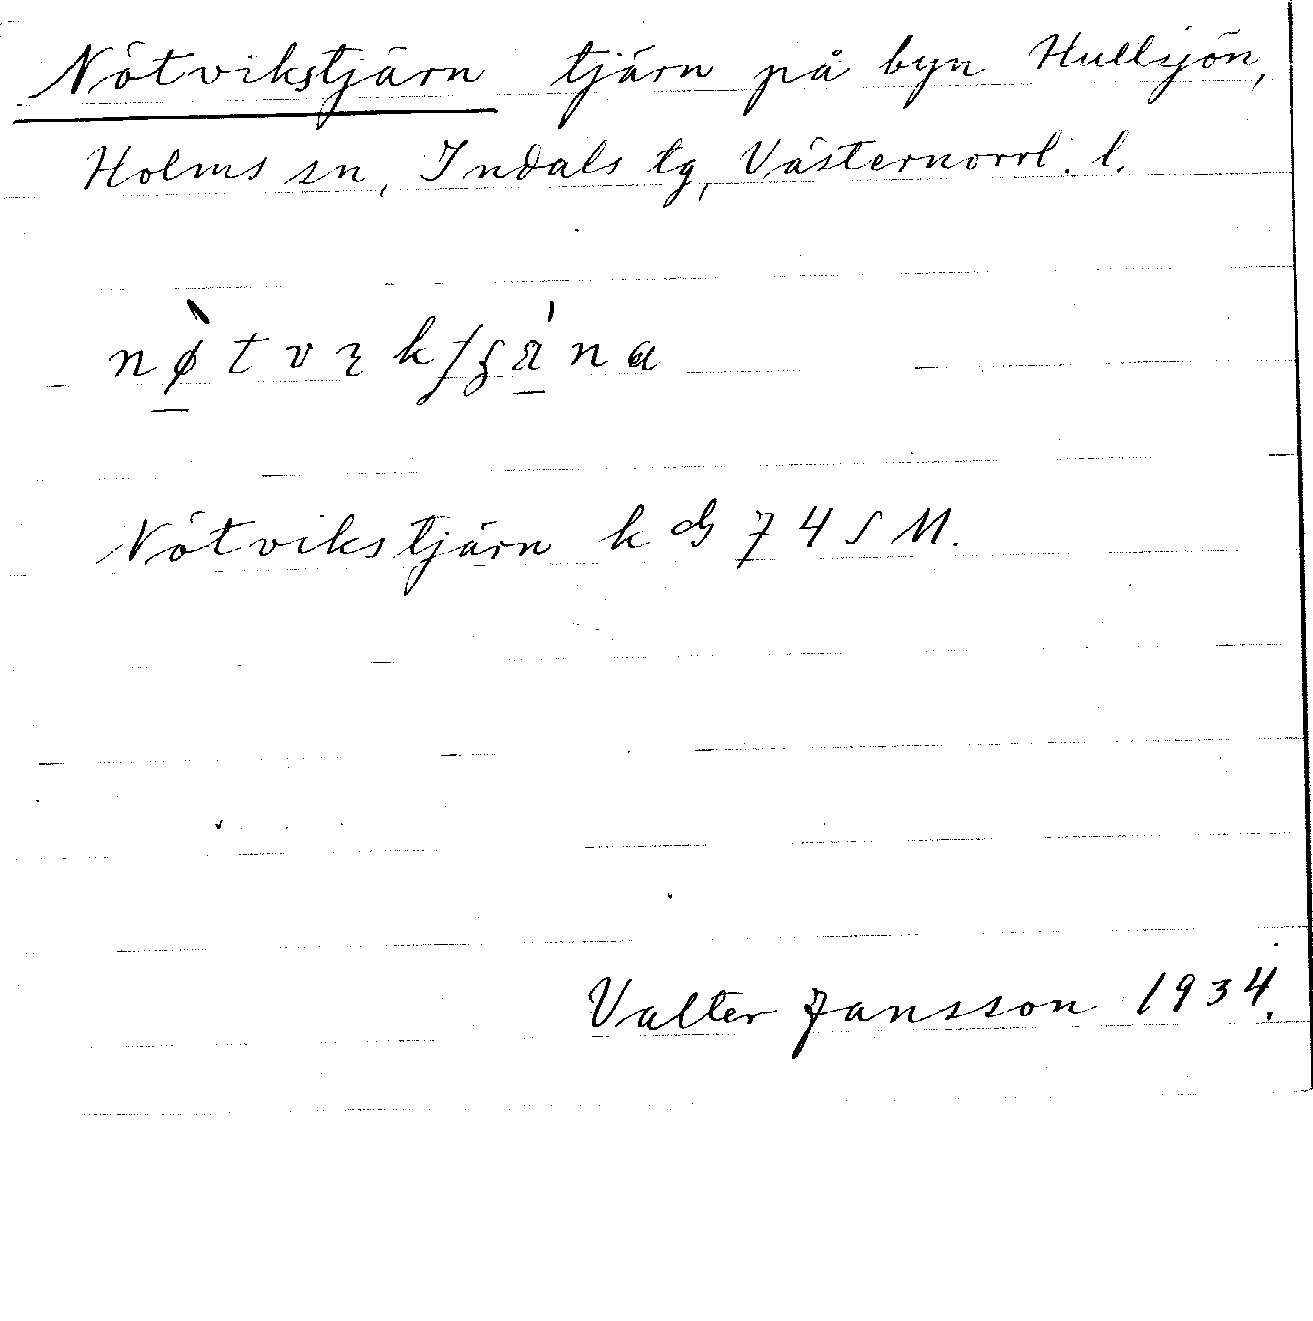 Nötvikstjärn tjärn på byn Hullsjön,
Holms sn, Indals tg, Västernorrl. l.
Nötvikstjärn k db 74 S M.
Valter Jansson 1934.